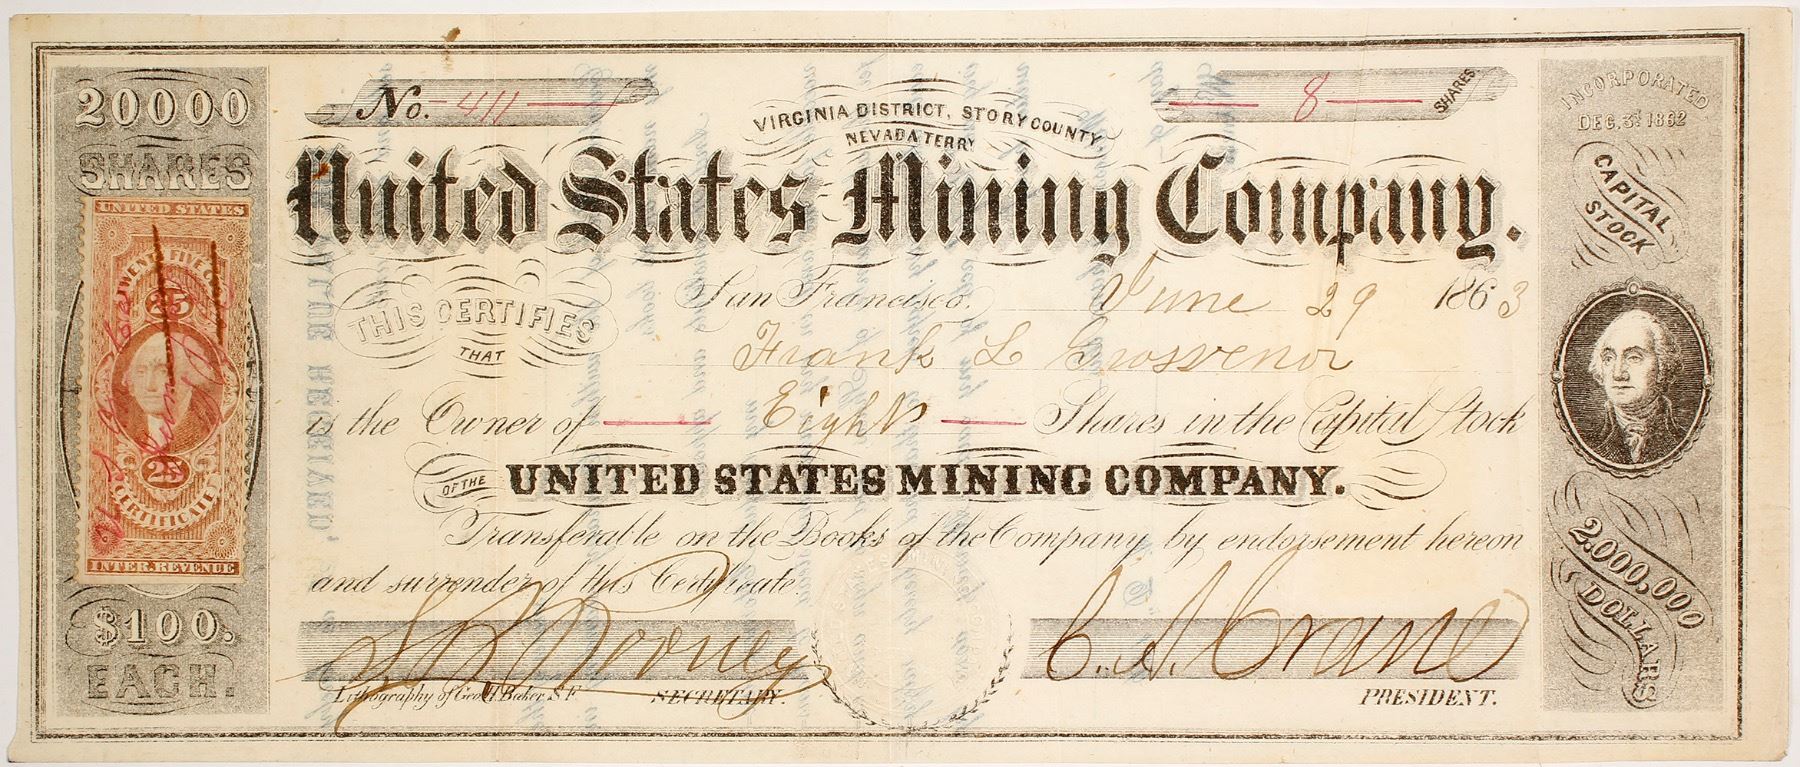 20000
SHARES
UNITED STATES
TWENTY FIVE
25
25
CERTIFICATE
INTER. REVENUE
$100.
EACH.
No. 411
8 SHARES
VIRGINIA DISTRICT, STORY COUNTY
NEVADA TERRY
United States Mining Company.
San Francisco, June 29 1863
THIS CERTIFIES
THAT
Frank L Grosvenor
is the Owner of Eight Shares in the Capital Stock
OF THE UNITED STATES MINING COMPANY.
Transferable on the Books of the Company by endorsement hereon
and surrender of this Certificate.
C. A. Crane
Lithography of Geo. H. Baker S F
SECRETARY.
PRESIDENT.
INCORPORATED
DEC, 3d 1862
CAPITAL
STOCK
2.000,000
DOLLARS